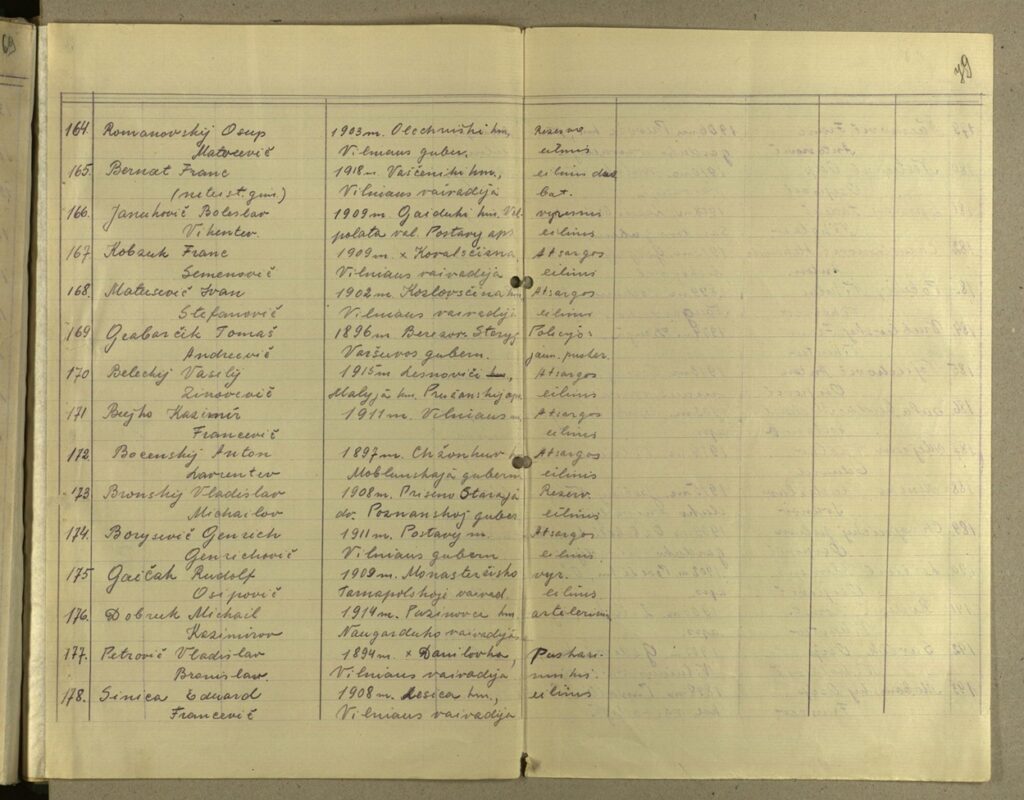 69
79
164. Romanovskij Osup 1903 m. Olechniški km, Rezerve
Matvcevič Vilniaus guber. eilinis
165. Bernat Franc 1918 m. Vaščeniki km., eilinis
(neteist. gim.) Vilniaus vaivadija bat.
166. Januhovič Boleslav 1909 m. Gaiduki km. Vel- vyresnis
Vikentev. polata val. Postavy aps eilinis
167 Kobzuk Franc 1909 m. x Kovalsčizna, Atsargos
Semenovič Vilniaus vaivadija eilinis
168. Matusevič Ivan 1902 m. Kozlovsčina km Atsargos
Stefanovič Vilniaus vaivadija eilinis
169 Grabarčik Tomaš 1896 m. Berezov. Staryj Policijos
Andreevič Varšuvos gubern. jaun. pusker.
170 Beleckij Vasely 1915 m Lesnoviči km., Atsargos
Zinovevič Malyja km. Pružanskij ap. eilinis
171 Bujko Kazimir 1911 m. Vilniaus m. Atsargos
Francevič eilinis
172. Bocenskij Anton 1897 m. Atsargos
Lavrentev gubern eilinis
173 Bronskij Vladislav 1908 m. Priseno Staraja Rezerv.
Michailov dv. Poznanskoj guber eilinis
174. Borysevič Genrich 1911 m. Postavy m. Atsargos
Genrichovič Vilniaus gubern eilinis
175 Gaičak Rudolf 1909 m. Monasterčisko vyr.
Osipovič Tarnapolskoje vaivad. eilinis
176. Dobruk Michail 1914 m. Puzinovce km. artelerium
Kazimirov Naugarduko vaivadija
177. Petrovič Vladislav 1894 m. x Danilovka, Puskari-
Bronislav. Vilniaus vaivadija ninkis.
178. Sinica Edward 1908 m. Lesica km., eilinis
Francevič Vilniaus vaivadija